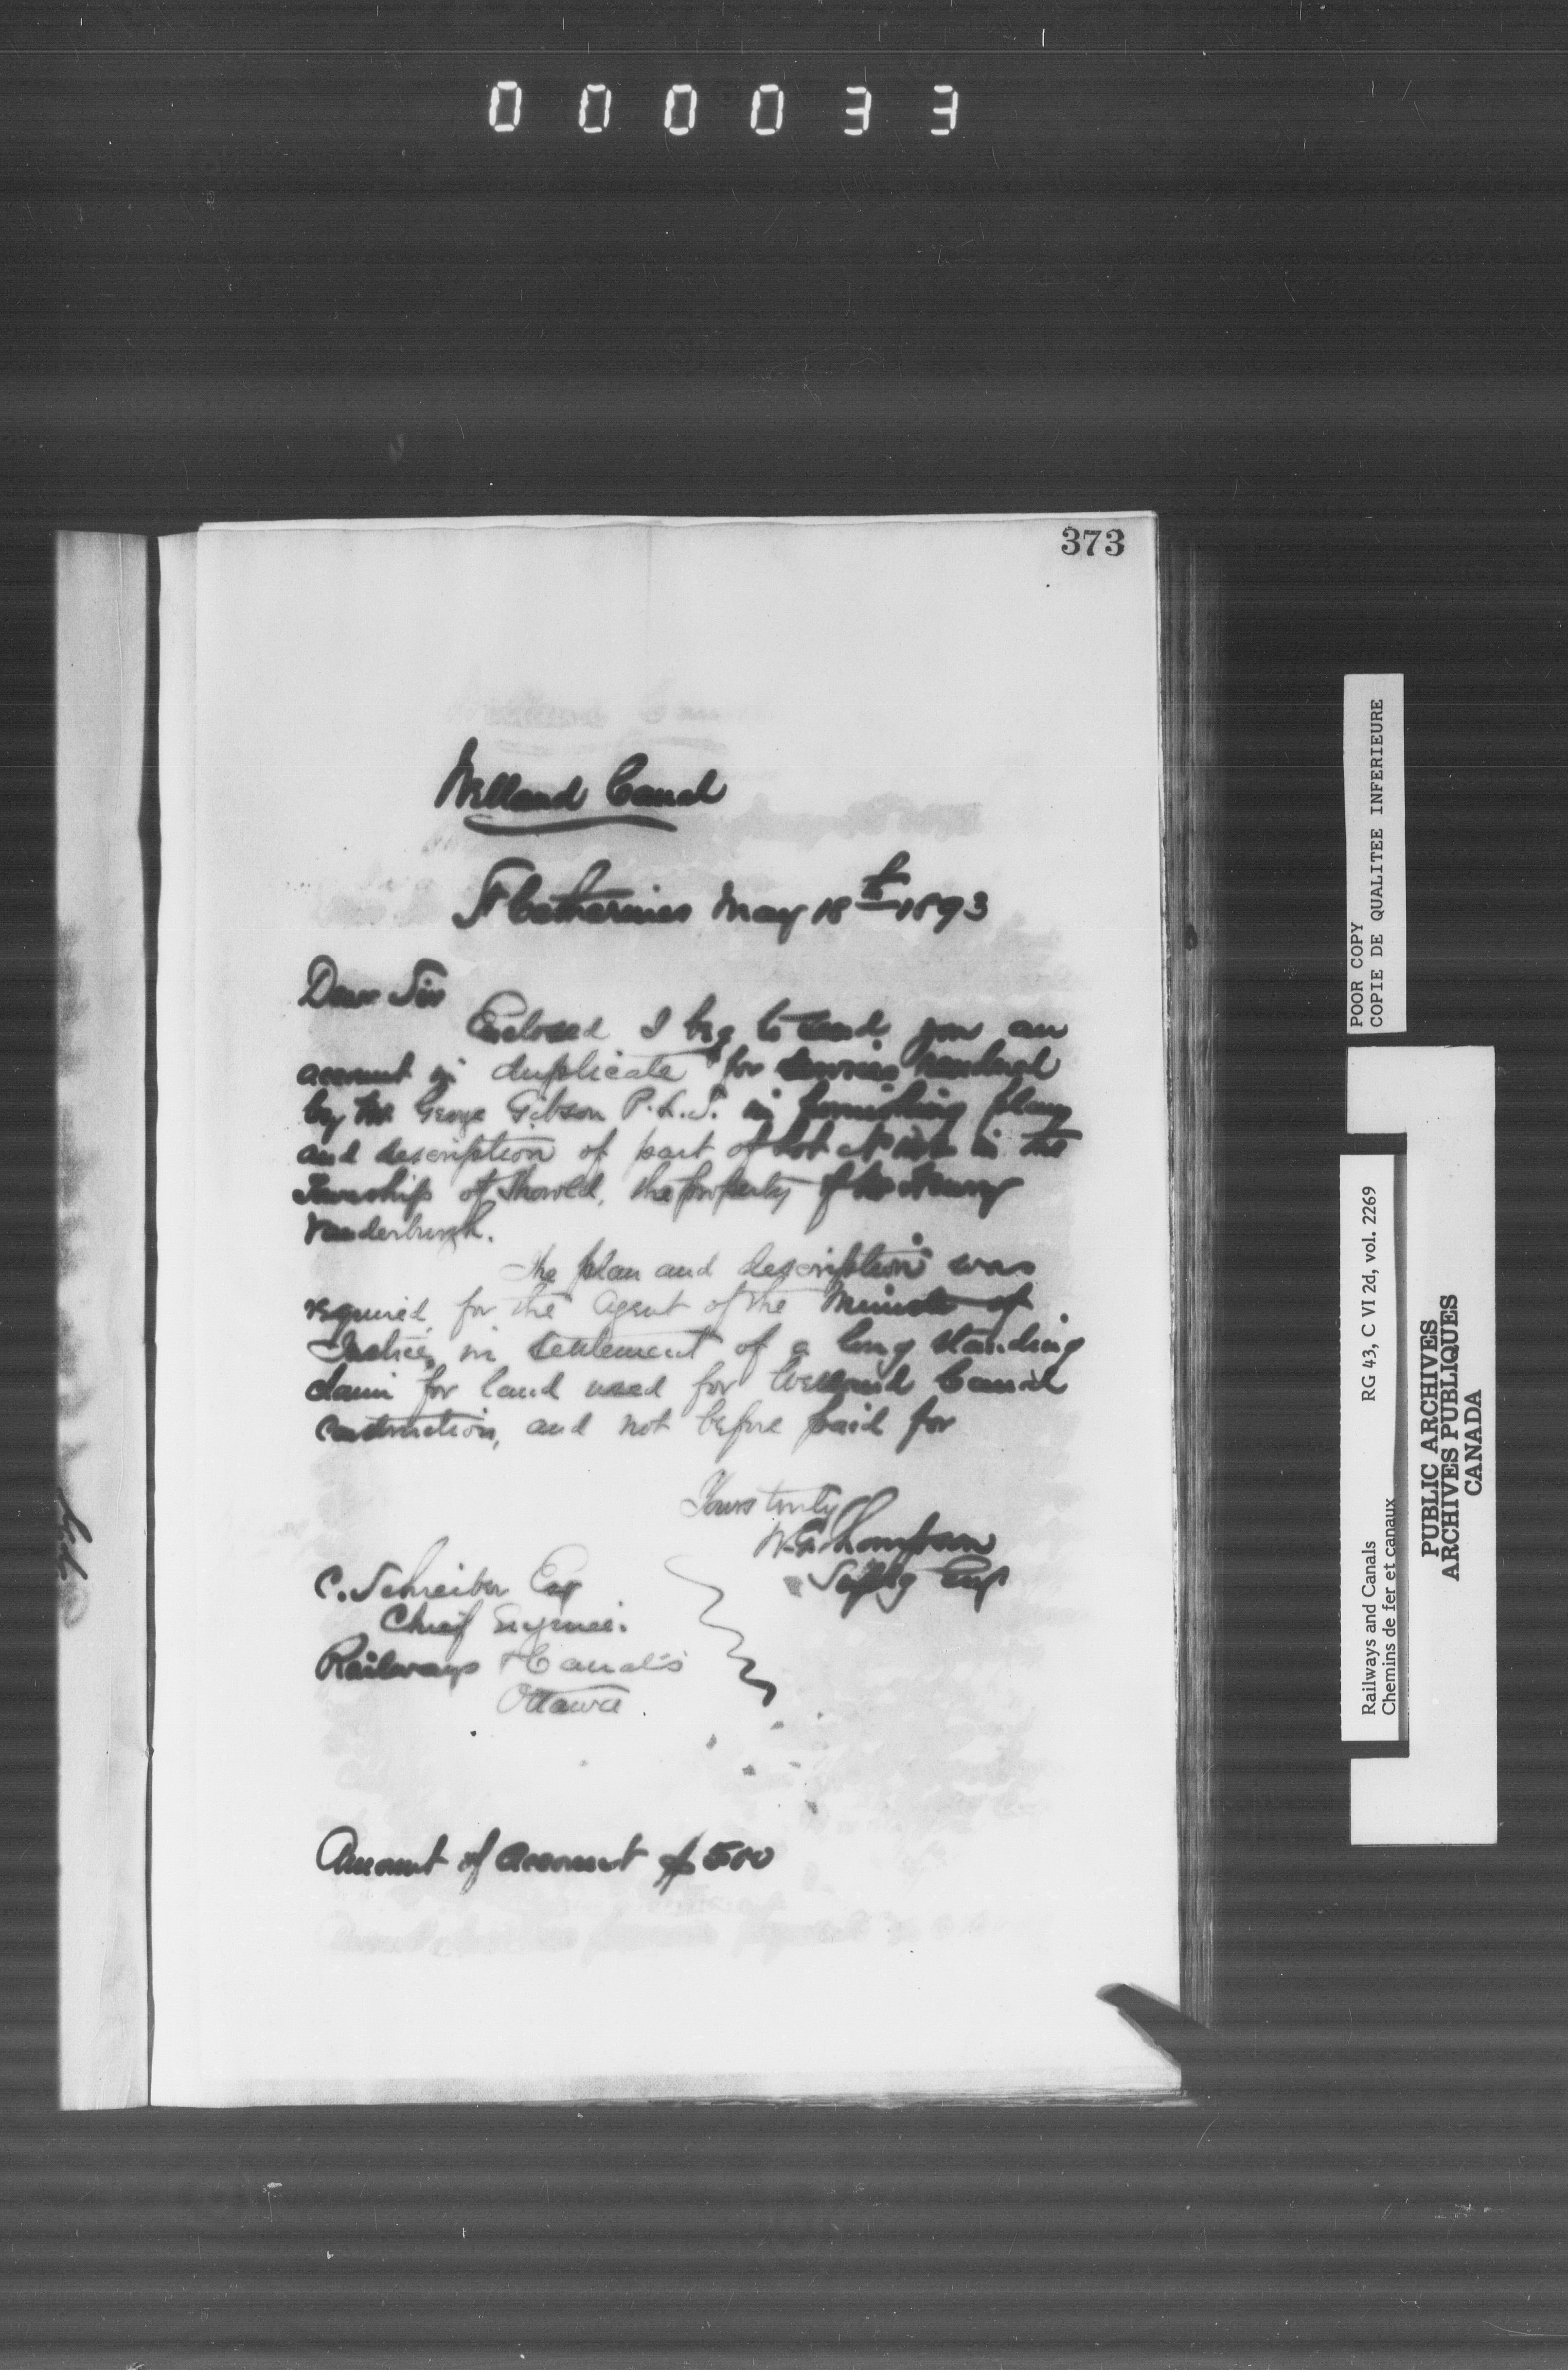 000033
373
Welland Canal
St Catharines May 18th 1893
Dear Sir
Enclosed I beg to send you an
account in duplicate for services rendered
by Mr. George Gibson P.L.S. in furnishing plan
and description of part of Lot in the
Township of Thorold, the property of Mr Henry
Vanderburgh.
The plan and description was
required for the Agent of the Minister of
Justice, in settlement of a long standing
claim for land used for Welland Canal
construction, and not before paid for
Yours truly
W.G. Thompson
Suptg Eng
C. Schreiber Esq
Chief Engineer.
Railways & Canals
Ottawa
Amount of account $500
POOR COPY
COPIE DE QUALITEE INFERIEURE
Railways and Canals RG 43, C VI 2d, vol. 2269
Chemins de fer et canaux
PUBLIC ARCHIVES
ARCHIVES PUBLIQUES
CANADA